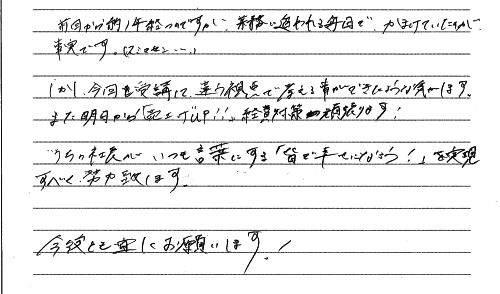 前回から約1年経つのですが、業務に追われる毎日で、かまけていたのが
事実です。(スミマセン…)
しかし今回を受講して、違う視点で考える事ができたような気がします。
また明日から「売上げUP!!」、経費対策頑張ります!
うちの社長が、いつも言葉にする「皆で幸せになろう!」を実現
すべく、努力致します。
今後とも宜しくお願いします!